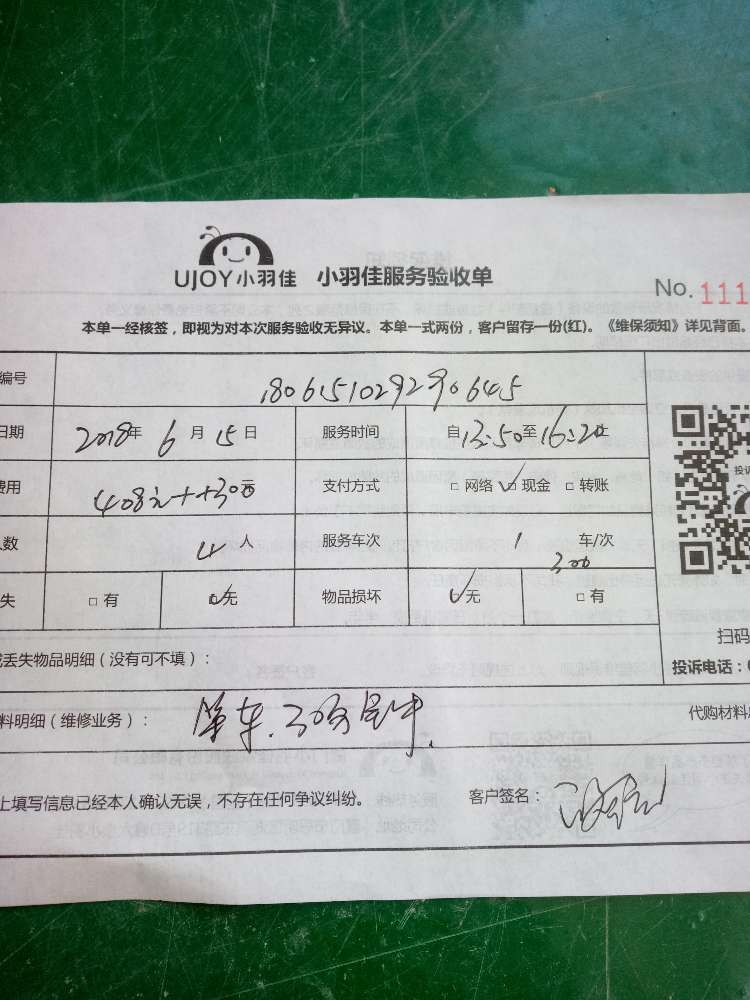 UJOY小羽佳 小羽佳服务验收单
No. 111
本单一经核签，即视为对本次服务验收无异议。本单一式两份，客户留存一份(红)。《维保须知》详见背面。
编号 1806151029290645
日期 2018年 6月 15日 服务时间 自13:50至16:20止
费用 408元++300元 支付方式 □ 网络 ☑ 现金 □ 转账
人数 4 人 服务车次 1 车/次
300
失 □ 有 ☑无 物品损坏 ☑无 □ 有
投诉
扫码
丢失物品明细（没有可不填）：
投诉电话：0
料明细（维修业务）：
代购材料
上填写信息已经本人确认无误，不存在任何争议纠纷。 客户签名：